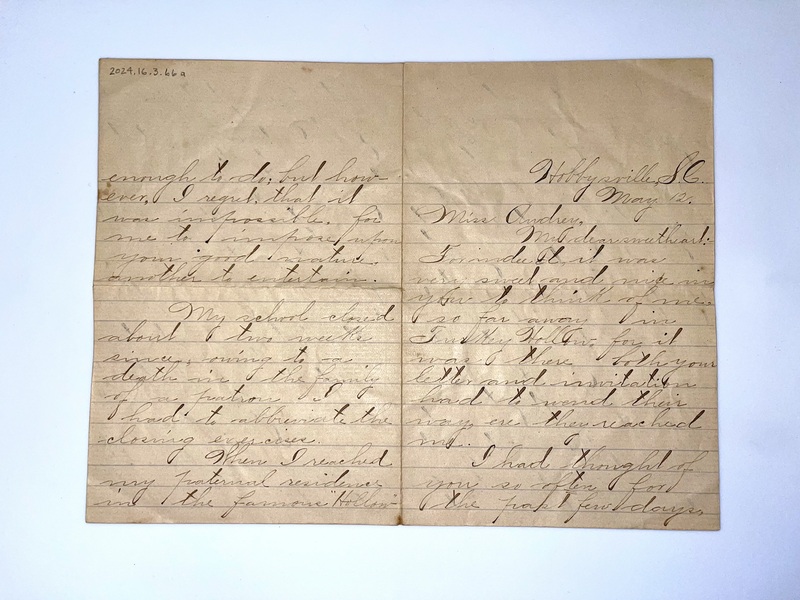 2024.16.3.66a
enough to do; but how-
ever, I regret that it
was impossible for
me to impose upon
your good nature
another to entertain.
My school closed
about two weeks
since, owing to a
depth in the family
of a patron I
had to abbreviate the
closing exercises.
When I reached
my paternal residence
in the famous "Hollow"
Hobbysville, S.C.
May 12.
Miss Audrey,
My dear sweetheart:
For indeed, it was
very sweet and nice in
you to think of me
so far away in
Turkey Hollow, for it
was there both your
letter and invitation
had to wend their
way ere they reached
me.
I had thought of
you so often for
the past few days,